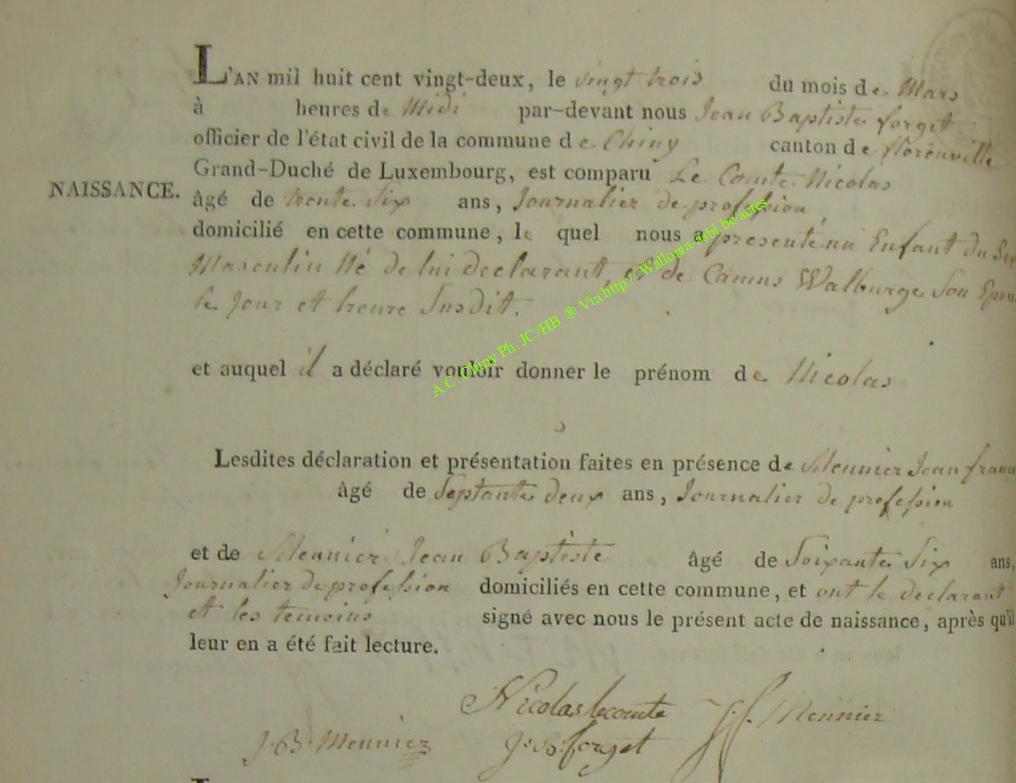 L'AN mil huit cent vingt-deux, le vingt trois du mois de Mars
à heures de Midi par-devant nous Jean Baptiste forget
officier de l'état civil de la commune de Chiny canton de florenville
Grand-Duché de Luxembourg, est comparu Le Comte Nicolas
NAISSANCE.
âgé de trente Six ans, Journalier de profession,
domicilié en cette commune, le quel nous a presente un Enfant du Sex
Masculin Né de lui declarant, et de Camus Walburge Son Epou
le Jour et heure Susdit.
et auquel il a déclaré vouloir donner le prénom de Nicolas
Lesdites déclaration et présentation faites en présence de Meunier Jean franç
âgé de Septante deux ans, Journalier de profession
et de Meunier Jean Baptiste âgé de Soixante Six ans,
Journalier de profession domiciliés en cette commune, et ont le declarant
et les temoins signé avec nous le présent acte de naissance, après qu'il
leur en a été fait lecture.
Nicolas lecomte J. f. Meunier
J. B. Meunier J. B. forget
A.C. Chiny Ph. JC/HB ® Via http://Wallonia-asbl.be/actes